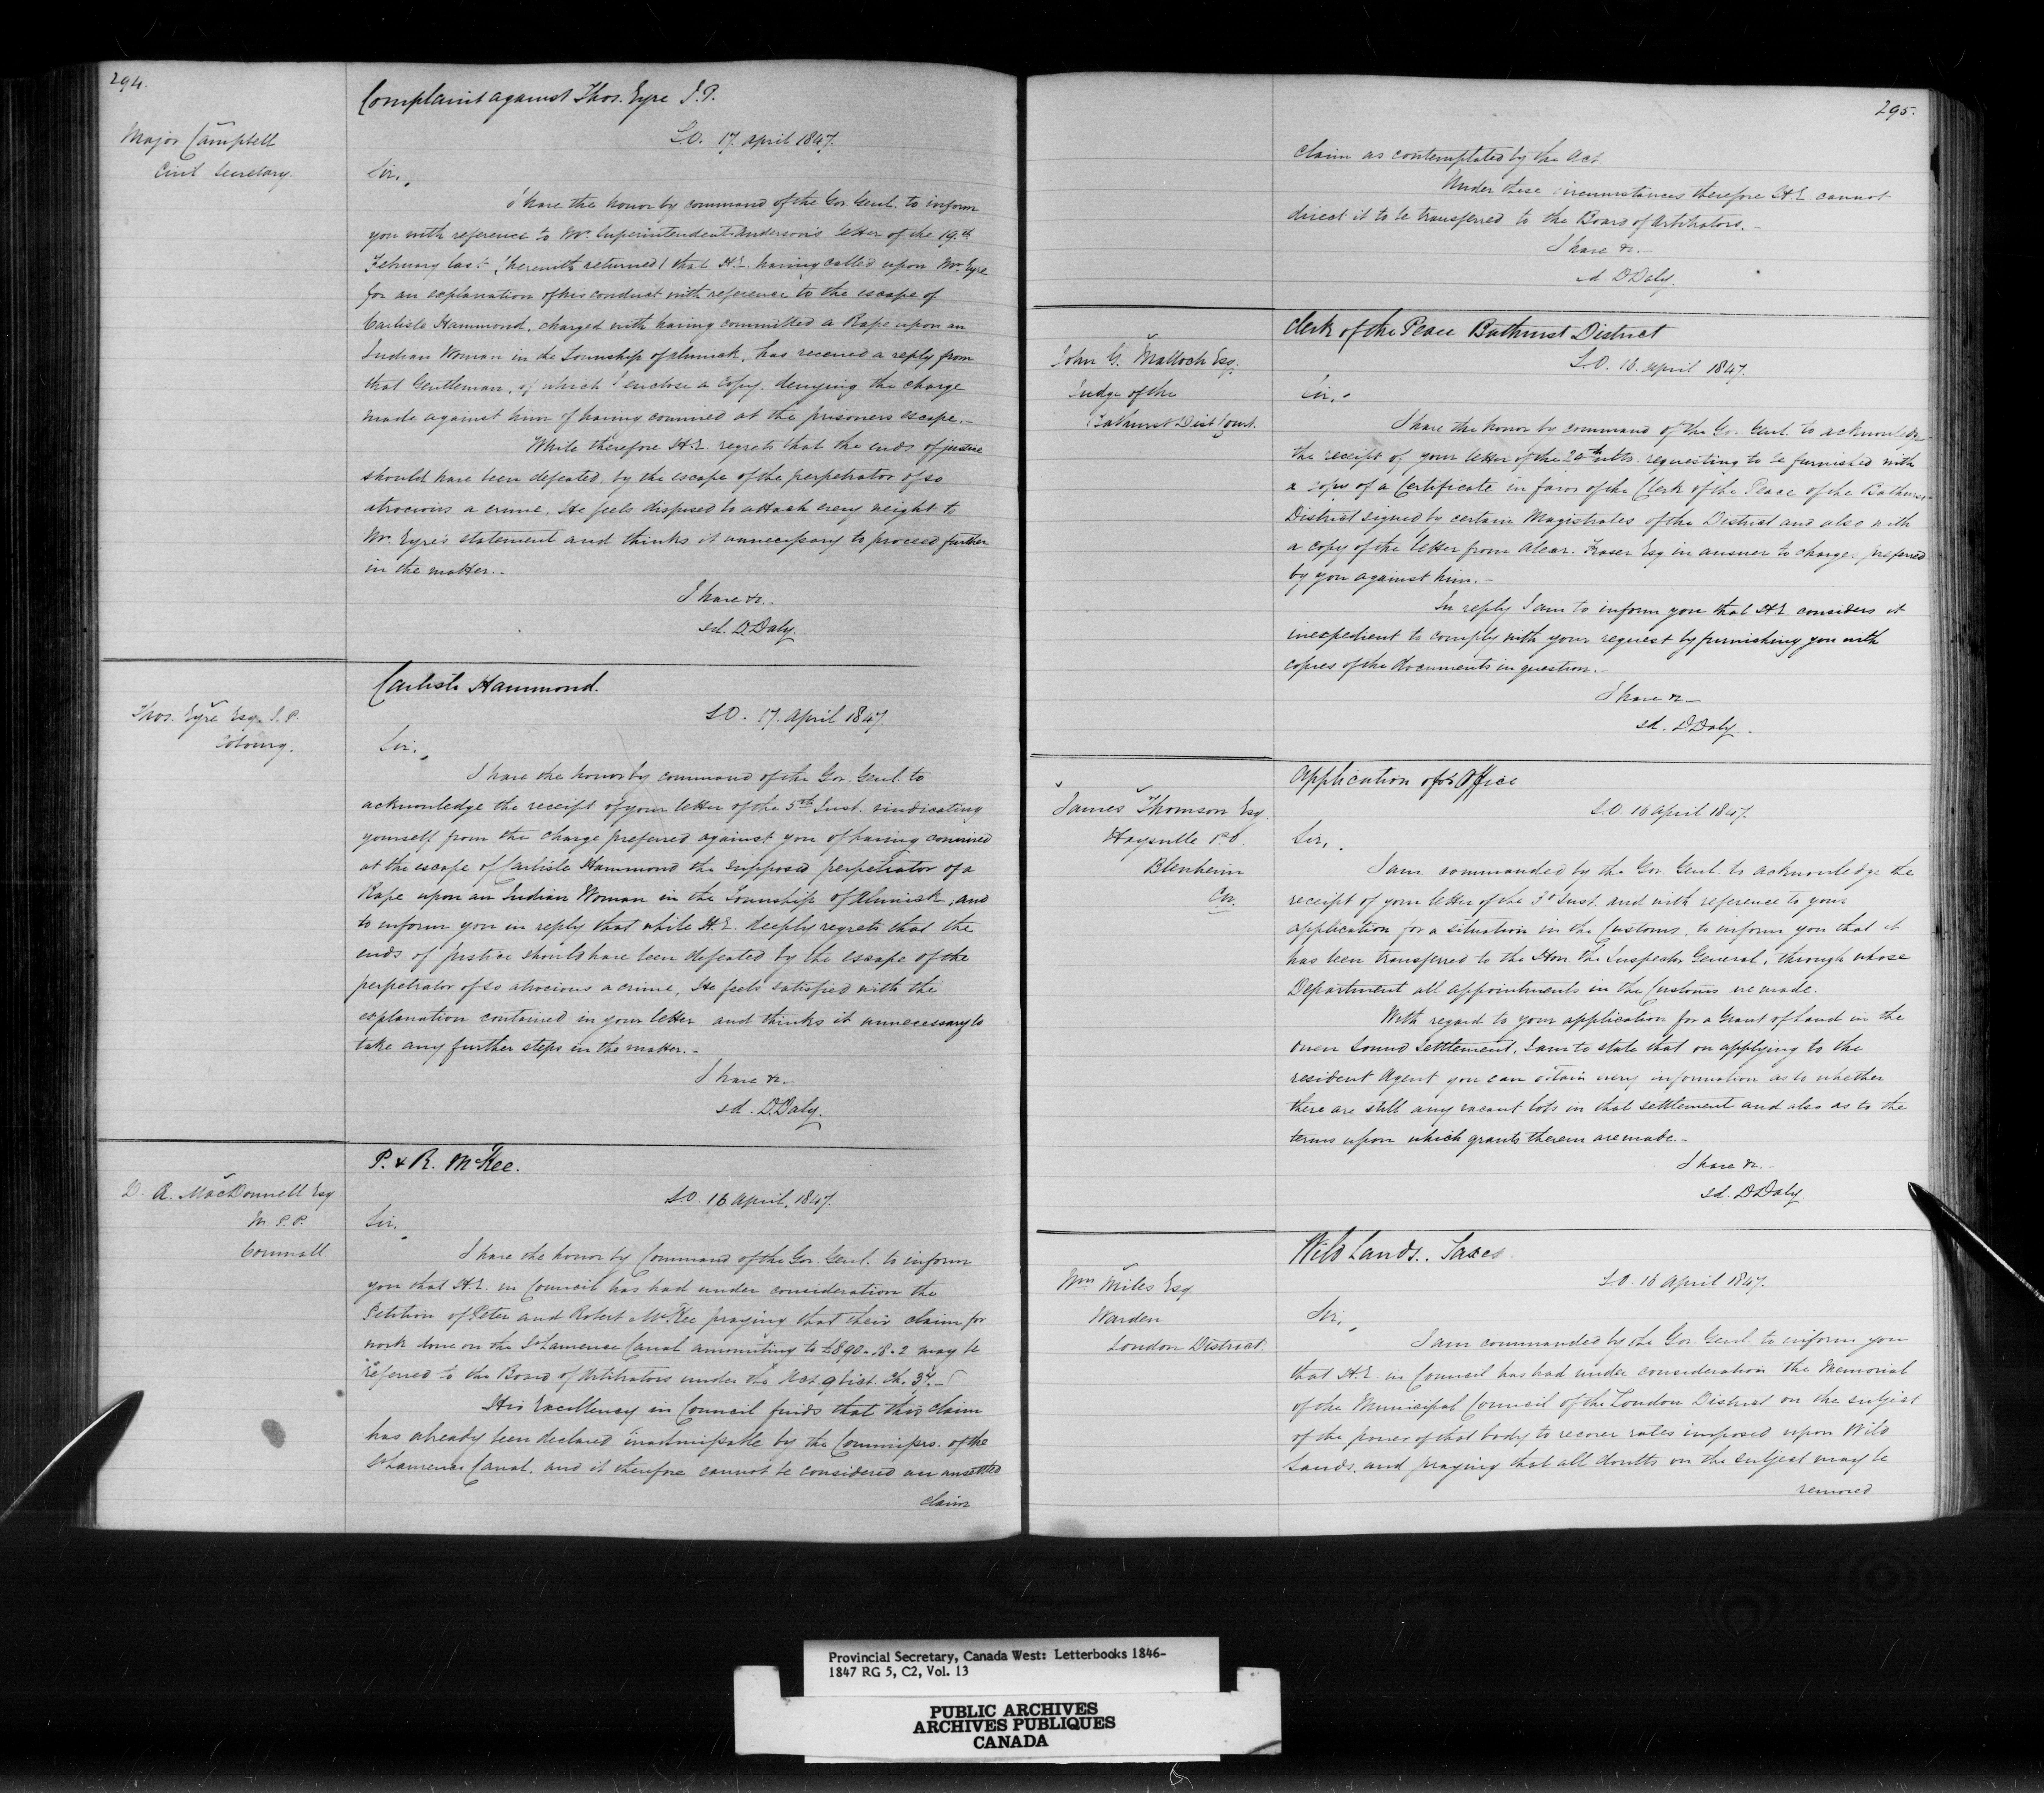 294.
Complaint against Thos. Eyre J.P.
Major Campbell
Civil Secretary.
S.O. 17 April 1847.
Sir,
I have the honor by command of the Gov. Genl. to inform
you with reference to Mr. Superintendent Anderson's letter of the 19th
February last (herewith returned) that H.E. having called upon Mr. Eyre
for an explanation of his conduct with reference to the escape of
Carlisle Hammond, charged with having committed a Rape upon an
Indian Woman in the Township of Alnwick, has received a reply from
that Gentleman, of which I enclose a copy, denying the charge
made against him of having connived at the prisoners escape.-
While therefore H.E. regrets that the ends of justice
should have been defeated, by the escape of the perpetrator of so
atrocious a crime, He feels disposed to attach every weight to
Mr. Eyre's statement and thinks it unnecessary to proceed further
in the matter.-
I have &c.-
sd. D. Daly.
Carlisle Hammond.
Thos. Eyre Esq. J.P.
Cobourg.
S.O. 17. April 1847.
Sir,
I have the honor by command of the Gov. Genl. to
acknowledge the receipt of your letter of the 5th Inst. vindicating
yourself from the charge preferred against you of having connived
at the escape of Carlisle Hammond the supposed perpetrator of a
Rape upon an Indian Woman in the Township of Alnwick, and
to inform you in reply that while H.E. deeply regrets that the
ends of justice should have been defeated by the escape of the
perpetrator of so atrocious a crime, He feels satisfied with the
explanation contained in your letter and thinks it unnecessary to
take any further steps in the matter.-
I have &c.-
sd. D. Daly.
P. & R. McKee.
D. A. MacDonnell Esq
M.P.P.
Cornwall
S.O. 16 April, 1847.
Sir,
I have the honor by Command of the Gov. Genl. to inform
you that H.E. in Council has had under consideration the
Petition of Peter and Robert McKee praying that their claim for
work done on the St Lawrence Canal amounting to £890-18-2 may be
referred to the Board of Arbitrators under the Act 9 Vict. Ch. 37.-
His Excellency in Council finds that this claim
has already been declared inadmissable by the Commissrs. of the
St Lawrence Canal, and it therefore cannot be considered an unsettled
claim
295.
claim as contemplated by the Act
Under these circumstances therefore H.E. cannot
direct it to be transferred to the Board of Arbitrators.-
I have &c.-
sd. D Daly.
Clerk of the Peace Bathurst District
John G. Malloch Esq.
Judge of the
Bathurst Dist Court.
S.O. 16. April 1847.
Sir,
I have the honor by command of the Gov. Genl. to acknowledge
the receipt of your letter of the 20th ulto. requesting to be furnished with
a copy of a Certificate in favor of the Clerk of the Peace of the Bathurst
District signed by certain Magistrates of the District and also with
a copy of the letter from Alexr. Fraser Esq in answer to charges preferred
by you against him.-
In reply I am to inform you that H.E. considers it
inexpedient to comply with your request by furnishing you with
copies of the documents in question.-
I have &c-
sd. D. Daly.
Application for Office
James Thomson Esq.
Haysville P.O.
Blenheim
CW.
S.O. 16 April 1847.
Sir,
I am commanded by the Gov. Genl. to acknowledge the
receipt of your letter of the 3d Inst. and with reference to your
application for a situation in the Customs, to inform you that it
has been transferred to the Hon. the Inspector General, through whose
Department all appointments in the Customs are made.
With regard to your application for a Grant of Land in the
Owen Sound Settlement, I am to state that on applying to the
resident Agent you can obtain every information as to whether
there are still any vacant lots in that settlement and also as to the
terms upon which grants therein are made.-
I have &c.-
sd. D Daly.
Wild Lands. Taxes.
Wm Niles Esq
Warden
London District.
S.O. 16 April 1847.
Sir,
I am commanded by the Gov. Genl. to inform you
that H.E. in Council has had under consideration the Memorial
of the Municipal Council of the London District on the subject
of the power of that body to recover rates imposed upon Wild
Lands, and praying that all doubts on the subject may be
removed
Provincial Secretary, Canada West: Letterbooks 1846-
1847 RG 5, C2, Vol. 13
PUBLIC ARCHIVES
ARCHIVES PUBLIQUES
CANADA